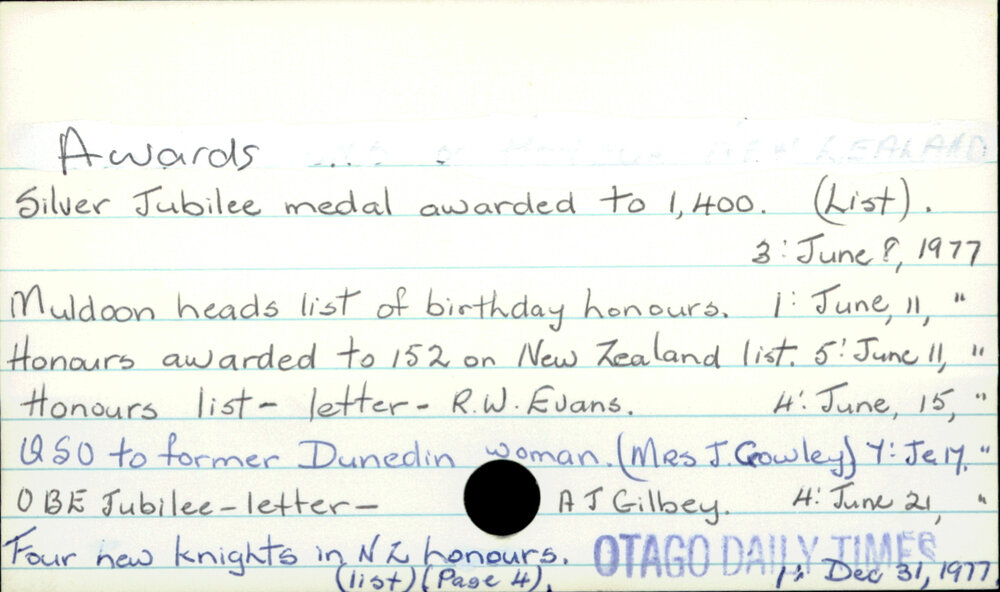 Awards NEW ZEALAND
Silver Jubilee medal awarded to 1,400. (List).
3: June 8, 1977
Muldoon heads list of birthday honours. 1: June, 11, "
Honours awarded to 152 on New Zealand list. 5: June 11, "
Honours list - letter - R.W. Evans. 4: June, 15, "
QSO to former Dunedin woman. (Mrs J. Crowley) 7: Je 17. "
OBE Jubilee - letter - A J Gilbey. 4: June 21, "
Four new knights in NZ honours. OTAGO DAILY TIMES
(list) (Page 4). 1: Dec 31, 1977